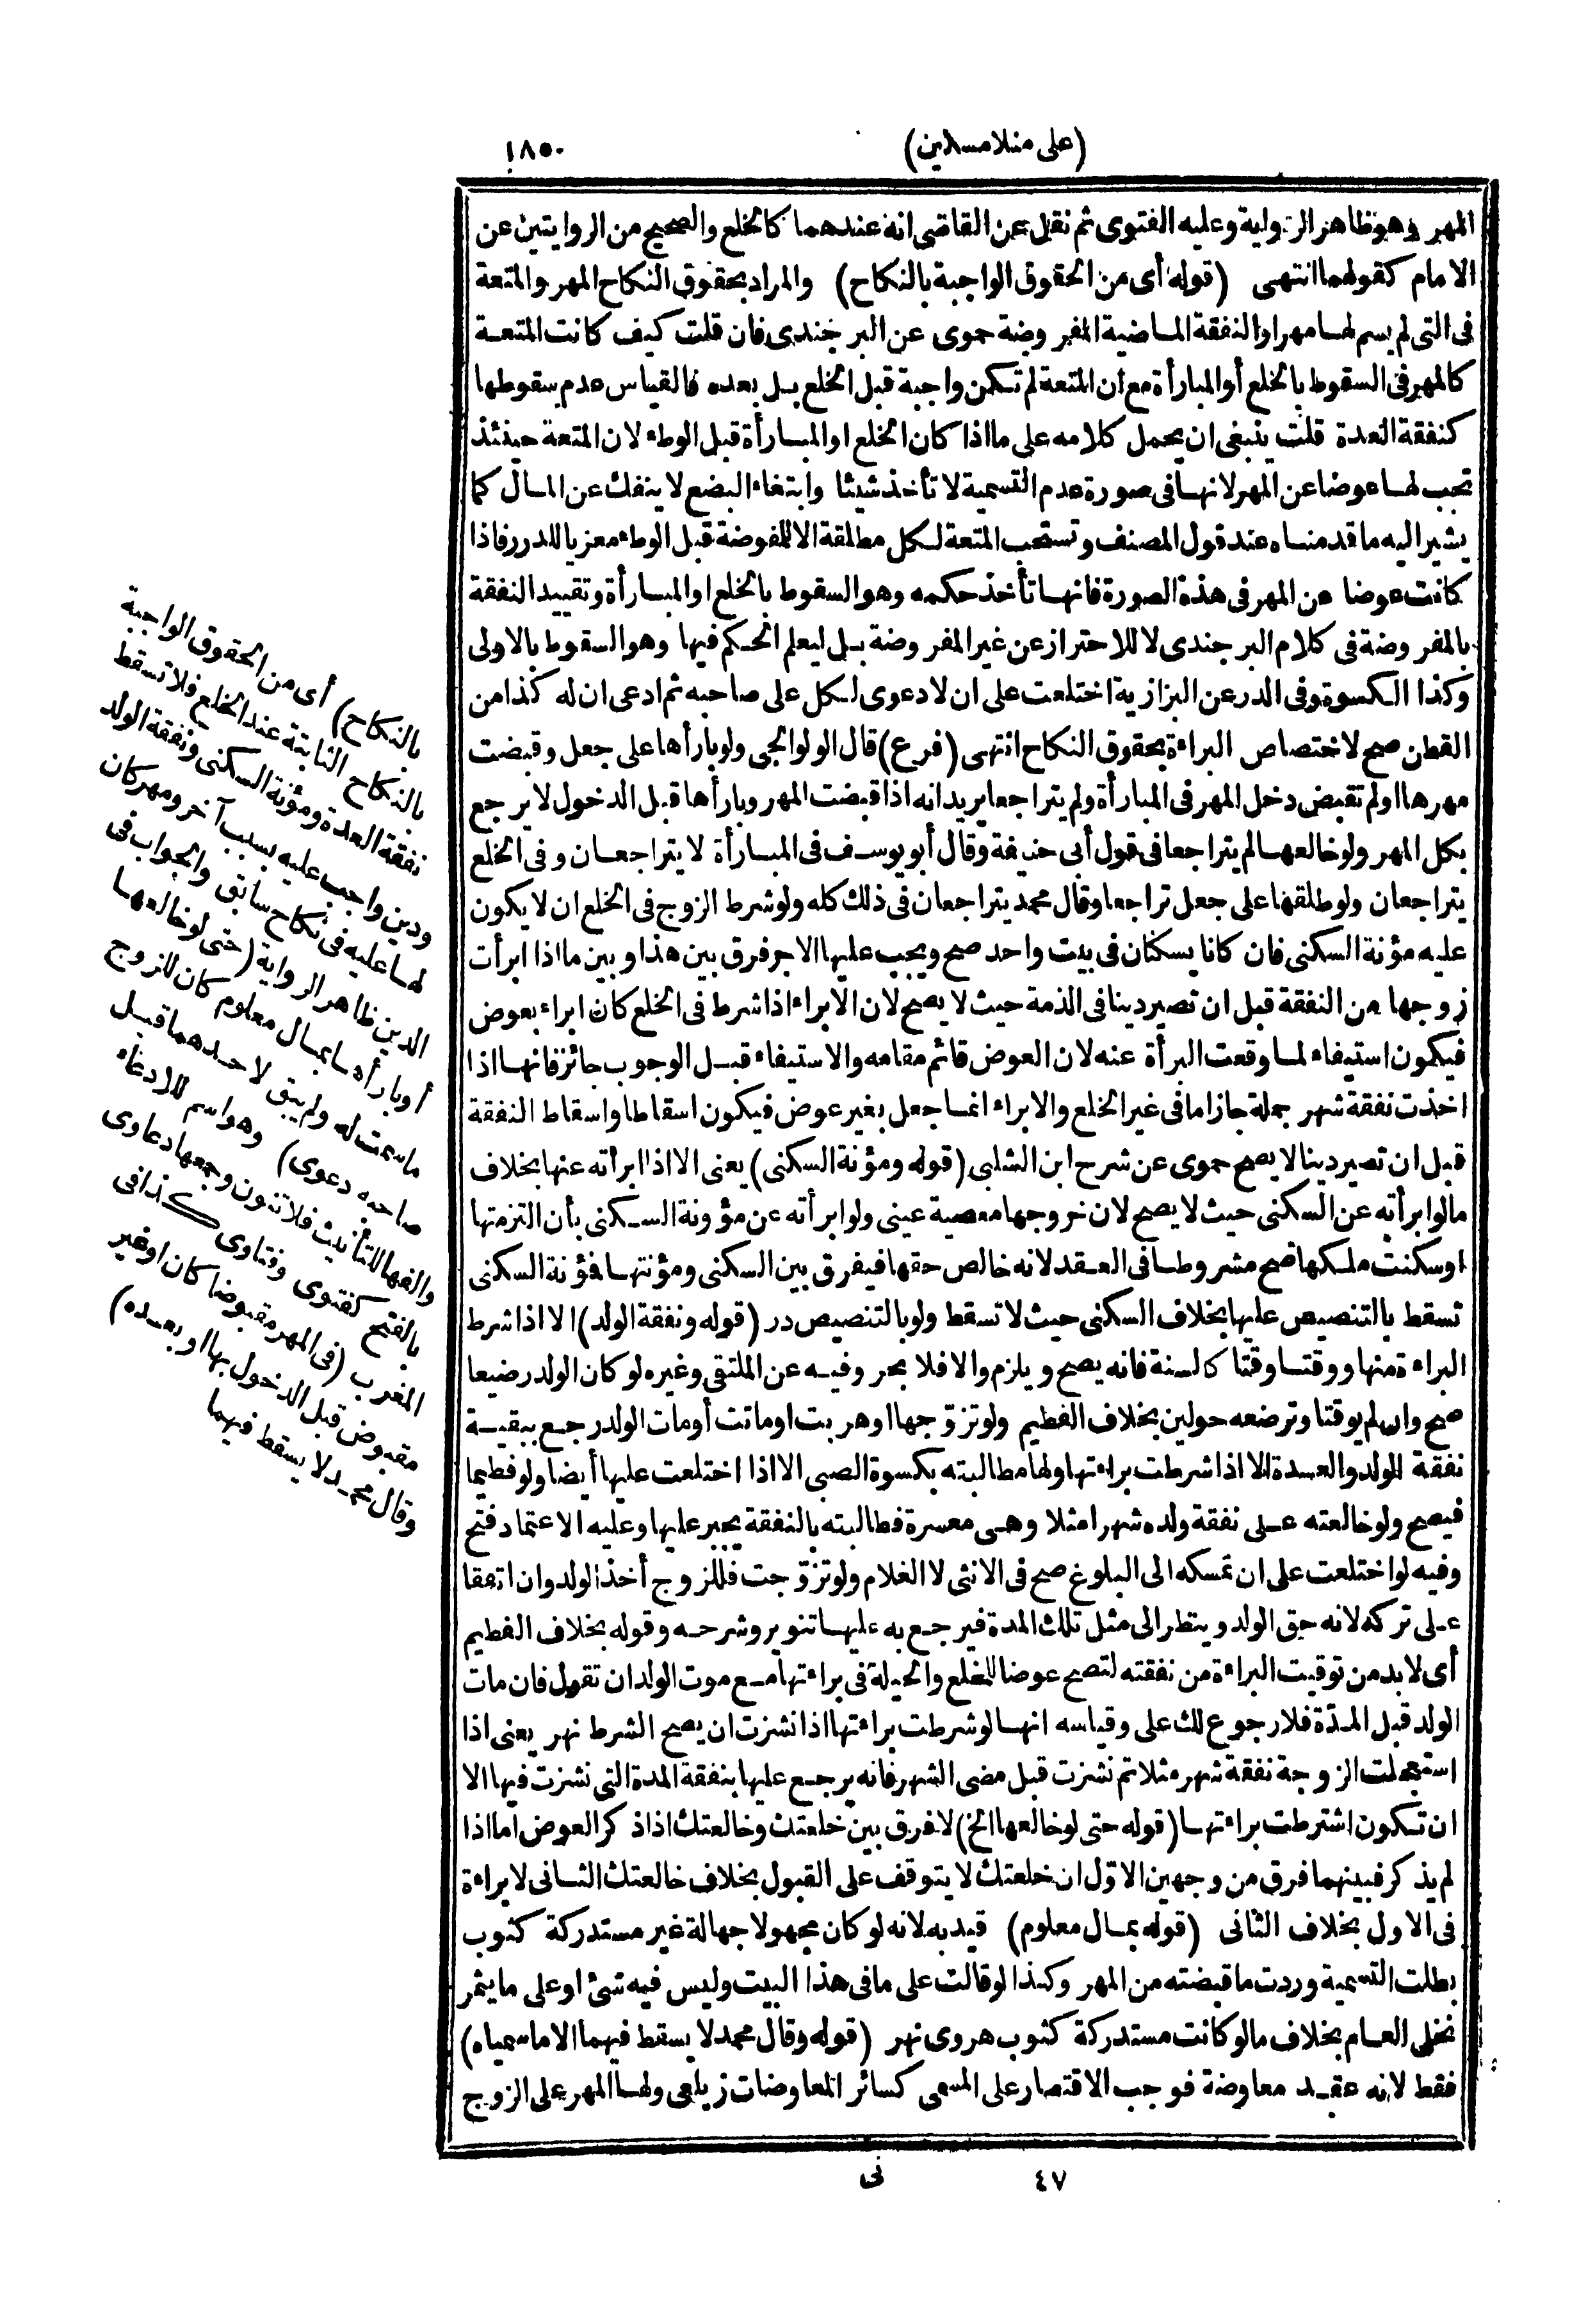 (على منلا مسكين)
١٨٥
المهر وهو ظاهر الرواية وعليه الفتوى ثم نقل عن القاضى انه عندهما كالخلع والصحيح من الروايتين عن
الامام كقولهما انتهى (قوله أى من الحقوق الواجبة بالنكاح) والمراد بحقوق النكاح المهر والمتعة
فى التى لم يسم لها مهرا والنفقة الماضية المفروضة حموى عن البرجندى فان قلت كيف كانت المتعة
كالمهر فى السقوط بالخلع أو المبارأة مع ان المتعة لم تكن واجبة قبل الخلع بل بعده فالقياس عدم سقوطها
كنفقة العدة قلت ينبغى ان يحمل كلامه على ما اذا كان الخلع او المبارأة قبل الوطء لان المتعة حينئذ
تجب لها عوضا عن المهر لانها فى صورة عدم التسمية لا تأخذ شيئا وابتغاء البضع لا ينفك عن المال كما
يشير اليه ما قدمناه عند قول المصنف وتستحب المتعة لكل مطلقة الا للمفوضة قبل الوطء معزيا للدرر فاذا
كانت عوضا عن المهر فى هذه الصورة فانها تأخذ حكمه وهو السقوط بالخلع او المبارأة وتقييد النفقة
بالمفروضة فى كلام البرجندى لا للاحتراز عن غير المفروضة بل ليعلم الحكم فيها وهو السقوط بالاولى
وكذا الكسوة وفى الدر عن البزازية اختلعت على ان لا دعوى لكل على صاحبه ثم ادعى ان له كذا من
القطن صح لاختصاص البراءة بحقوق النكاح انتهى (فرع) قال الولوالجى ولو بارأها على جعل وقبضت
مهرها او لم تقبض دخل المهر فى المبارأة ولم يتراجعا يريد انه اذا قبضت المهر وبارأها قبل الدخول لا يرجع
بكل المهر ولو خالعها لم يتراجعا فى قول أبى حنيفة وقال أبو يوسف فى المبارأة لا يتراجعان وفى الخلع
يتراجعان ولو طلقها على جعل تراجعا وقال محمد يتراجعان فى ذلك كله ولو شرط الزوج فى الخلع ان لا يكون
عليه مؤنة السكنى فان كانا يسكنان فى بيت واحد صح ويجب عليها الاجر فرق بين هذا وبين ما اذا ابرأت
زوجها من النفقة قبل ان تصير دينا فى الذمة حيث لا يصح لان الابراء اذا شرط فى الخلع كان ابراء بعوض
فيكون استيفاء لما وقعت البرأة عنه لان العوض قائم مقامه والاستيفاء قبل الوجوب جائز فانها اذا
اخذت نفقة شهر جملة جاز اما فى غير الخلع والابراء انما جعل بغير عوض فيكون اسقاطا واسقاط النفقة
قبل ان تصير دينا لا يصح حموى عن شرح ابن الشلبى (قوله ومؤنة السكنى) يعنى الا اذا ابرأته عنها بخلاف
ما لو ابرأته عن السكنى حيث لا يصح لان خروجها معصية عينى ولو ابرأته عن مؤونة السكنى بأن التزمتها
او سكنت ملكها صح مشروطا فى العقد لانه خالص حقها فيفرق بين السكنى ومؤنتها فؤنة السكنى
تسقط بالتنصيص عليها بخلاف السكنى حيث لا تسقط ولو بالتنصيص در (قوله ونفقة الولد) الا اذا شرط
البراءة منها ووقتا وقتا كالسنة فانه يصح ويلزم والا فلا بحر وفيه عن الملتقى وغيره لو كان الولد رضيعا
صح وان لم يوقتا وترضعه حولين بخلاف الفطيم ولو تزوّجها او هربت او ماتت أو مات الولد رجع ببقية
نفقة الولد والعدة الا اذا شرطت براءتها ولها مطالبته بكسوة الصبى الا اذا اختلعت عليها أيضا ولو فطيما
فيصح ولو خالعته على نفقة ولده شهرا مثلا وهى معسرة فطالبته بالنفقة يجبر عليها وعليه الاعتماد فتح
وفيه لو اختلعت على ان تمسكه الى البلوغ صح فى الانثى لا الغلام ولو تزوّجت فللزوج أخذ الولد وان اتفقا
على تركه لانه حق الولد وينظر الى مثل تلك المدة فيرجع به عليها تنوير وشرحه وقوله بخلاف الفطيم
أى لا بد من توقيت البراءة من نفقته لتصح عوضا للخلع والحيلة فى براءتها مع موت الولد ان تقول فان مات
الولد قبل المدّة فلا رجوع لك على وقياسه انها لو شرطت براءتها اذا نشزت ان يصح الشرط نهر يعنى اذا
استعجلت الزوجة نفقة شهر مثلا ثم نشزت قبل مضى الشهر فانه يرجع عليها بنفقة المدة التى نشزت فيها الا
ان تكون اشترطت براءتها (قوله حتى لو خالعها الخ) لا فرق بين خلعتك وخالعتك اذا ذكر العوض اما اذا
لم يذكر فبينهما فرق من وجهين الاوّل ان خلعتك لا يتوقف على القبول بخلاف خالعتك الثانى لا براءة
فى الاول بخلاف الثانى (قوله بمال معلوم) قيد به لانه لو كان مجهولا جهالة غير مستدركة كثوب
بطلت التسمية وردت ما قبضته من المهر وكذا لو قالت على ما فى هذا البيت وليس فيه شئ او على ما يثمر
نخلى العام بخلاف ما لو كانت مستدركة كثوب هروى نهر (قوله وقال محمد لا يسقط فيهما الا ما سمياه)
فقط لانه عقد معاوضة فوجب الاقتصار على المسمى كسائر المعاوضات زيلعى ولها المهر على الزوج
بالنكاح) أى من الحقوق الواجبة
بالنكاح الثابتة عند الخلع فلا تسقط
نفقة العدة ومؤنة السكنى ونفقة الولد
ودين واجب عليه بسبب آخر ومهر كان
لها عليه فى نكاح سابق والجواب فى
الدين ظاهر الرواية (حتى لو خالعها
أو بارأها بمال معلوم كان للزوج
ما سمت له ولم يبق لاحدهما قبل
صاحبه دعوى) وهو اسم للادعاء
والفها للتأنيث فلا تنون وجمعها دعاوى
بالفتح كفتوى وفتاوى كذا فى
المغرب (فى المهر مقبوضا كان او غير
مقبوض قبل الدخول بها او بعده)
وقال محمد لا يسقط فيهما
٤٧
نى